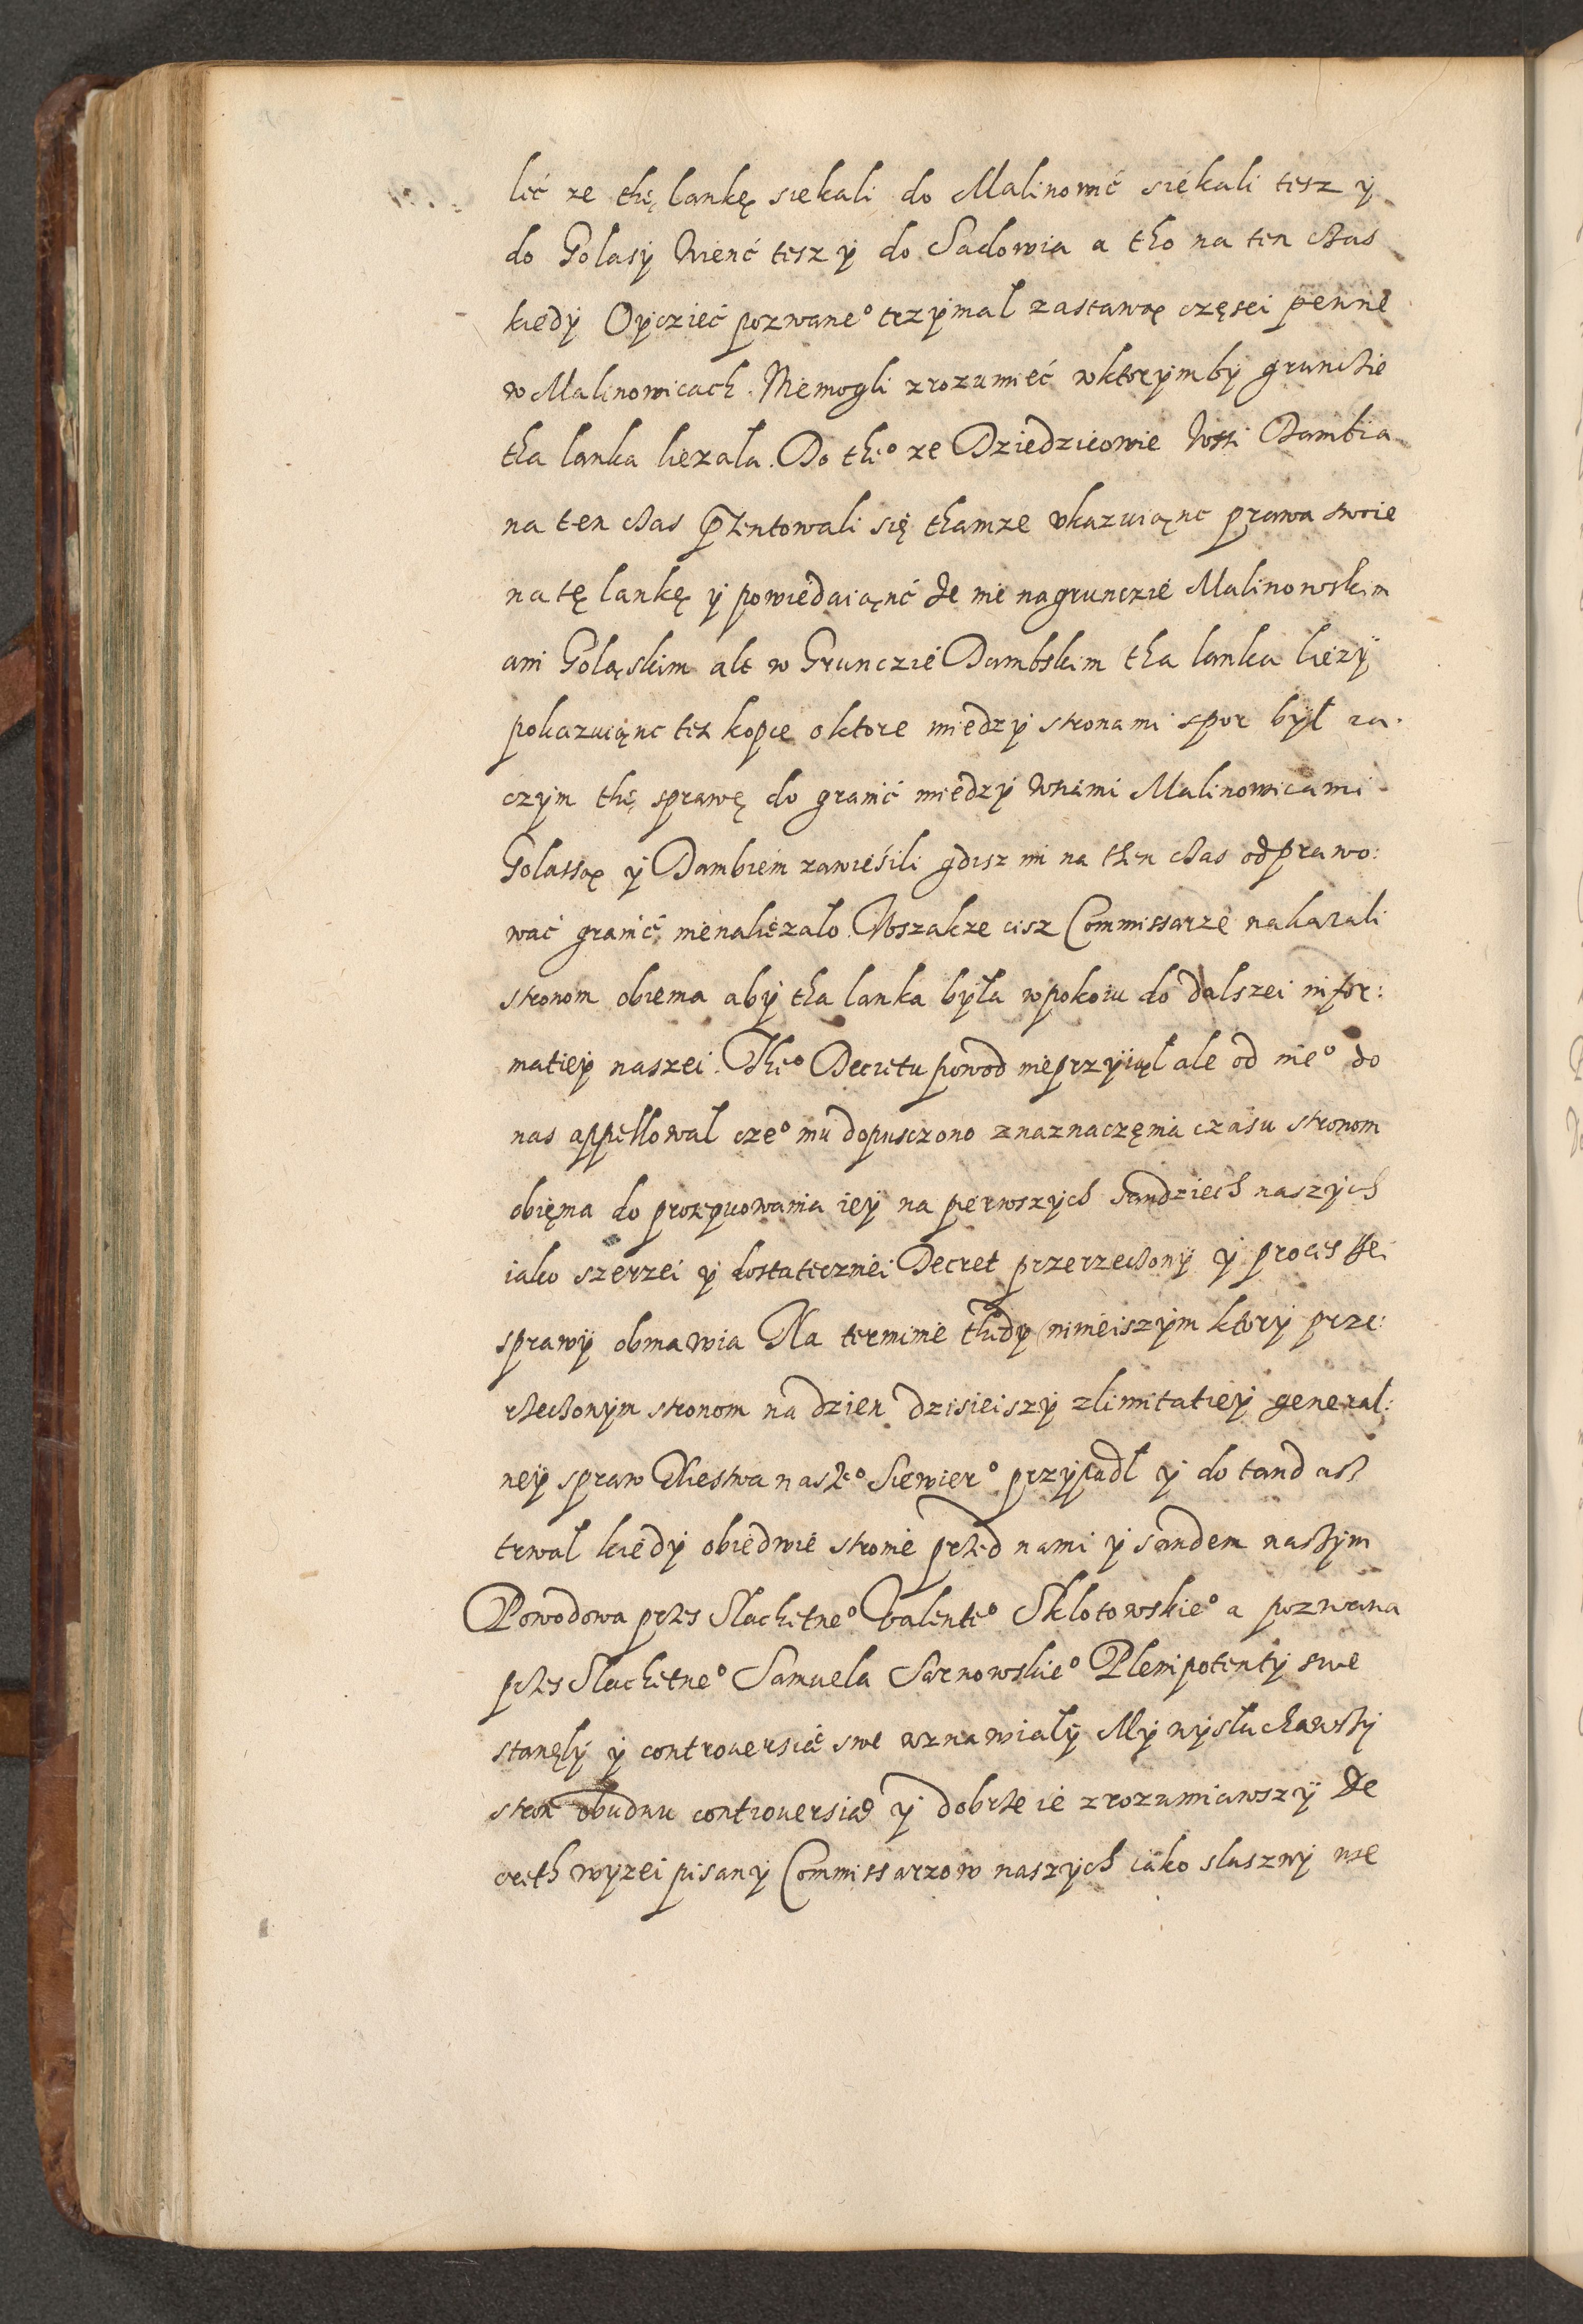 lić ze thę lankę siekali do Malinowić siekali tesz ÿ
do Golasÿ Wienć tesz ÿ do Sadowia a tho na ten cżas
kiedÿ Oÿczieć pozwane° trzÿmal zastawą częsci pewne
w Malinowicach. Niemogli zrozumieć wktorÿmbÿ gruncżie
tha lanka liezala. Do the° ze Dziedzicowie Wssi Dambia
na ten cżas pżentowali się thamze vkazuiąnc prawa swoie
na tę lankę ÿ powiedaiąnć że nie nagrunczie Malinowskim
ani Goląskim ale w Grunczie Dambskim tha lanka lieżÿ
pokazuiąnc tez kopce oktore miedzÿ stronami spor bÿł za
czÿm thę sprawę do granić miedzÿ Wsiami Malinowicami
Golassą ÿ Dambiem zawiesili gdisz im na then cżas odprawo:
wać granić nienaliezalo. Wszakze cisz Commissarze nakazali
stronom obiema abÿ tha lanka bÿła wpokoiu do dalszei infor:
matieÿ naszei. The° Decretu powod nieprzÿiął ale od nie° do
nas appellowal cze° mu dopusczono znaznaczęnia czasu stronom
obięma do prozequowania ieÿ na pierwszÿch Sandziech naszÿch
iako szerzei ÿ dostatecznieÿ Decret przerzecżonÿ ÿ proces tei
sprawÿ obmawia Na terminie thedÿ ninieiszÿm ktorÿ prze:
rżecżonÿm stronom na dzien dzisieiszÿ zlimitatieÿ general:
neÿ spraw Xiestwa nasże° Siewier° przÿpadl ÿ do tand asż
trwal kiedÿ obiedwie stronie przed nami ÿ sandem nasżÿm
Powodowa przes Slachetne° Valente° Sklotowskie° a pozwana
przes Slachetne° Samuela Sarnowskie° Plenipotentÿ swe
stanęlÿ ÿ controuersie swe wznawialÿ Mÿ wÿsluchawszÿ
stron obudwu controuersią ÿ dobrże ie zrozumiawszÿ De
creth wÿzei pisanÿ Commissarzow naszÿch iako slusznÿ we